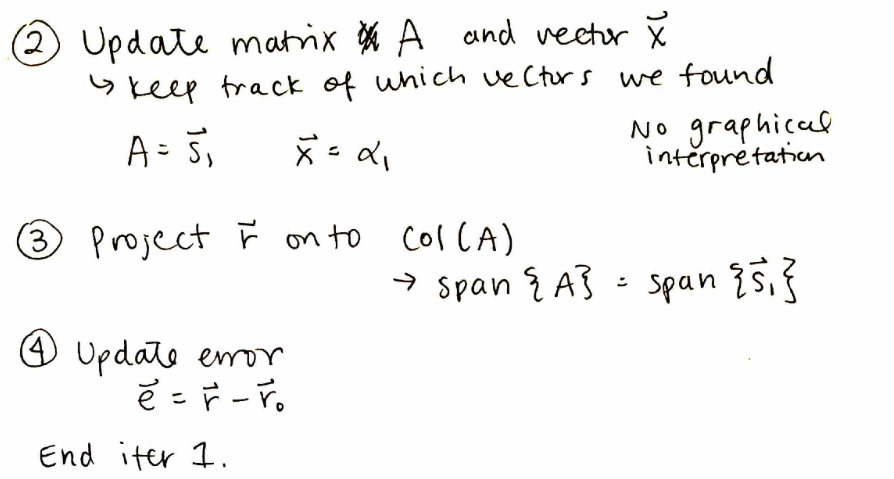 ② Update matrix A and vector x⃗
↳ keep track of which vectors we found
A = s⃗₁ x⃗ = α₁
No graphical
interpretation
③ Project r⃗ onto Col(A)
→ span {A} = span {s⃗₁}
④ Update error
e⃗ = r⃗ - r⃗₀
End iter 1.